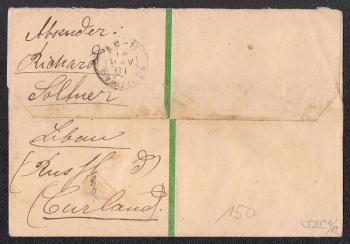 Absender:
Richard
Soltner
Libau
(Russl d)
(Curland).
150